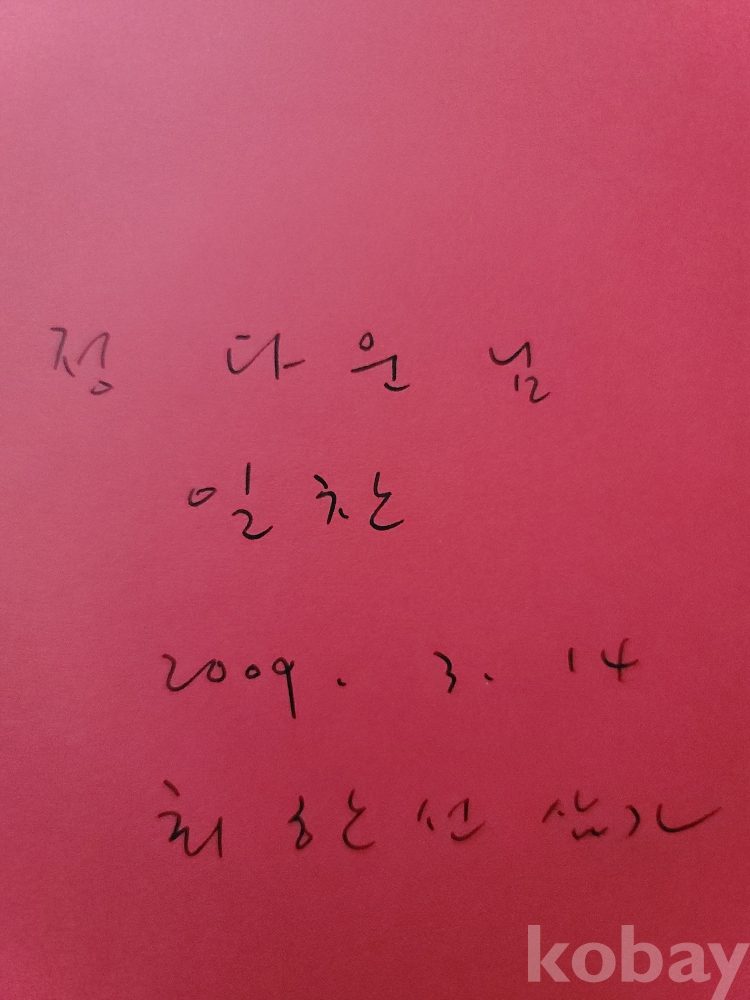 정 다운 님
일찬
2009. 3. 14
최한선 삼가
kobay